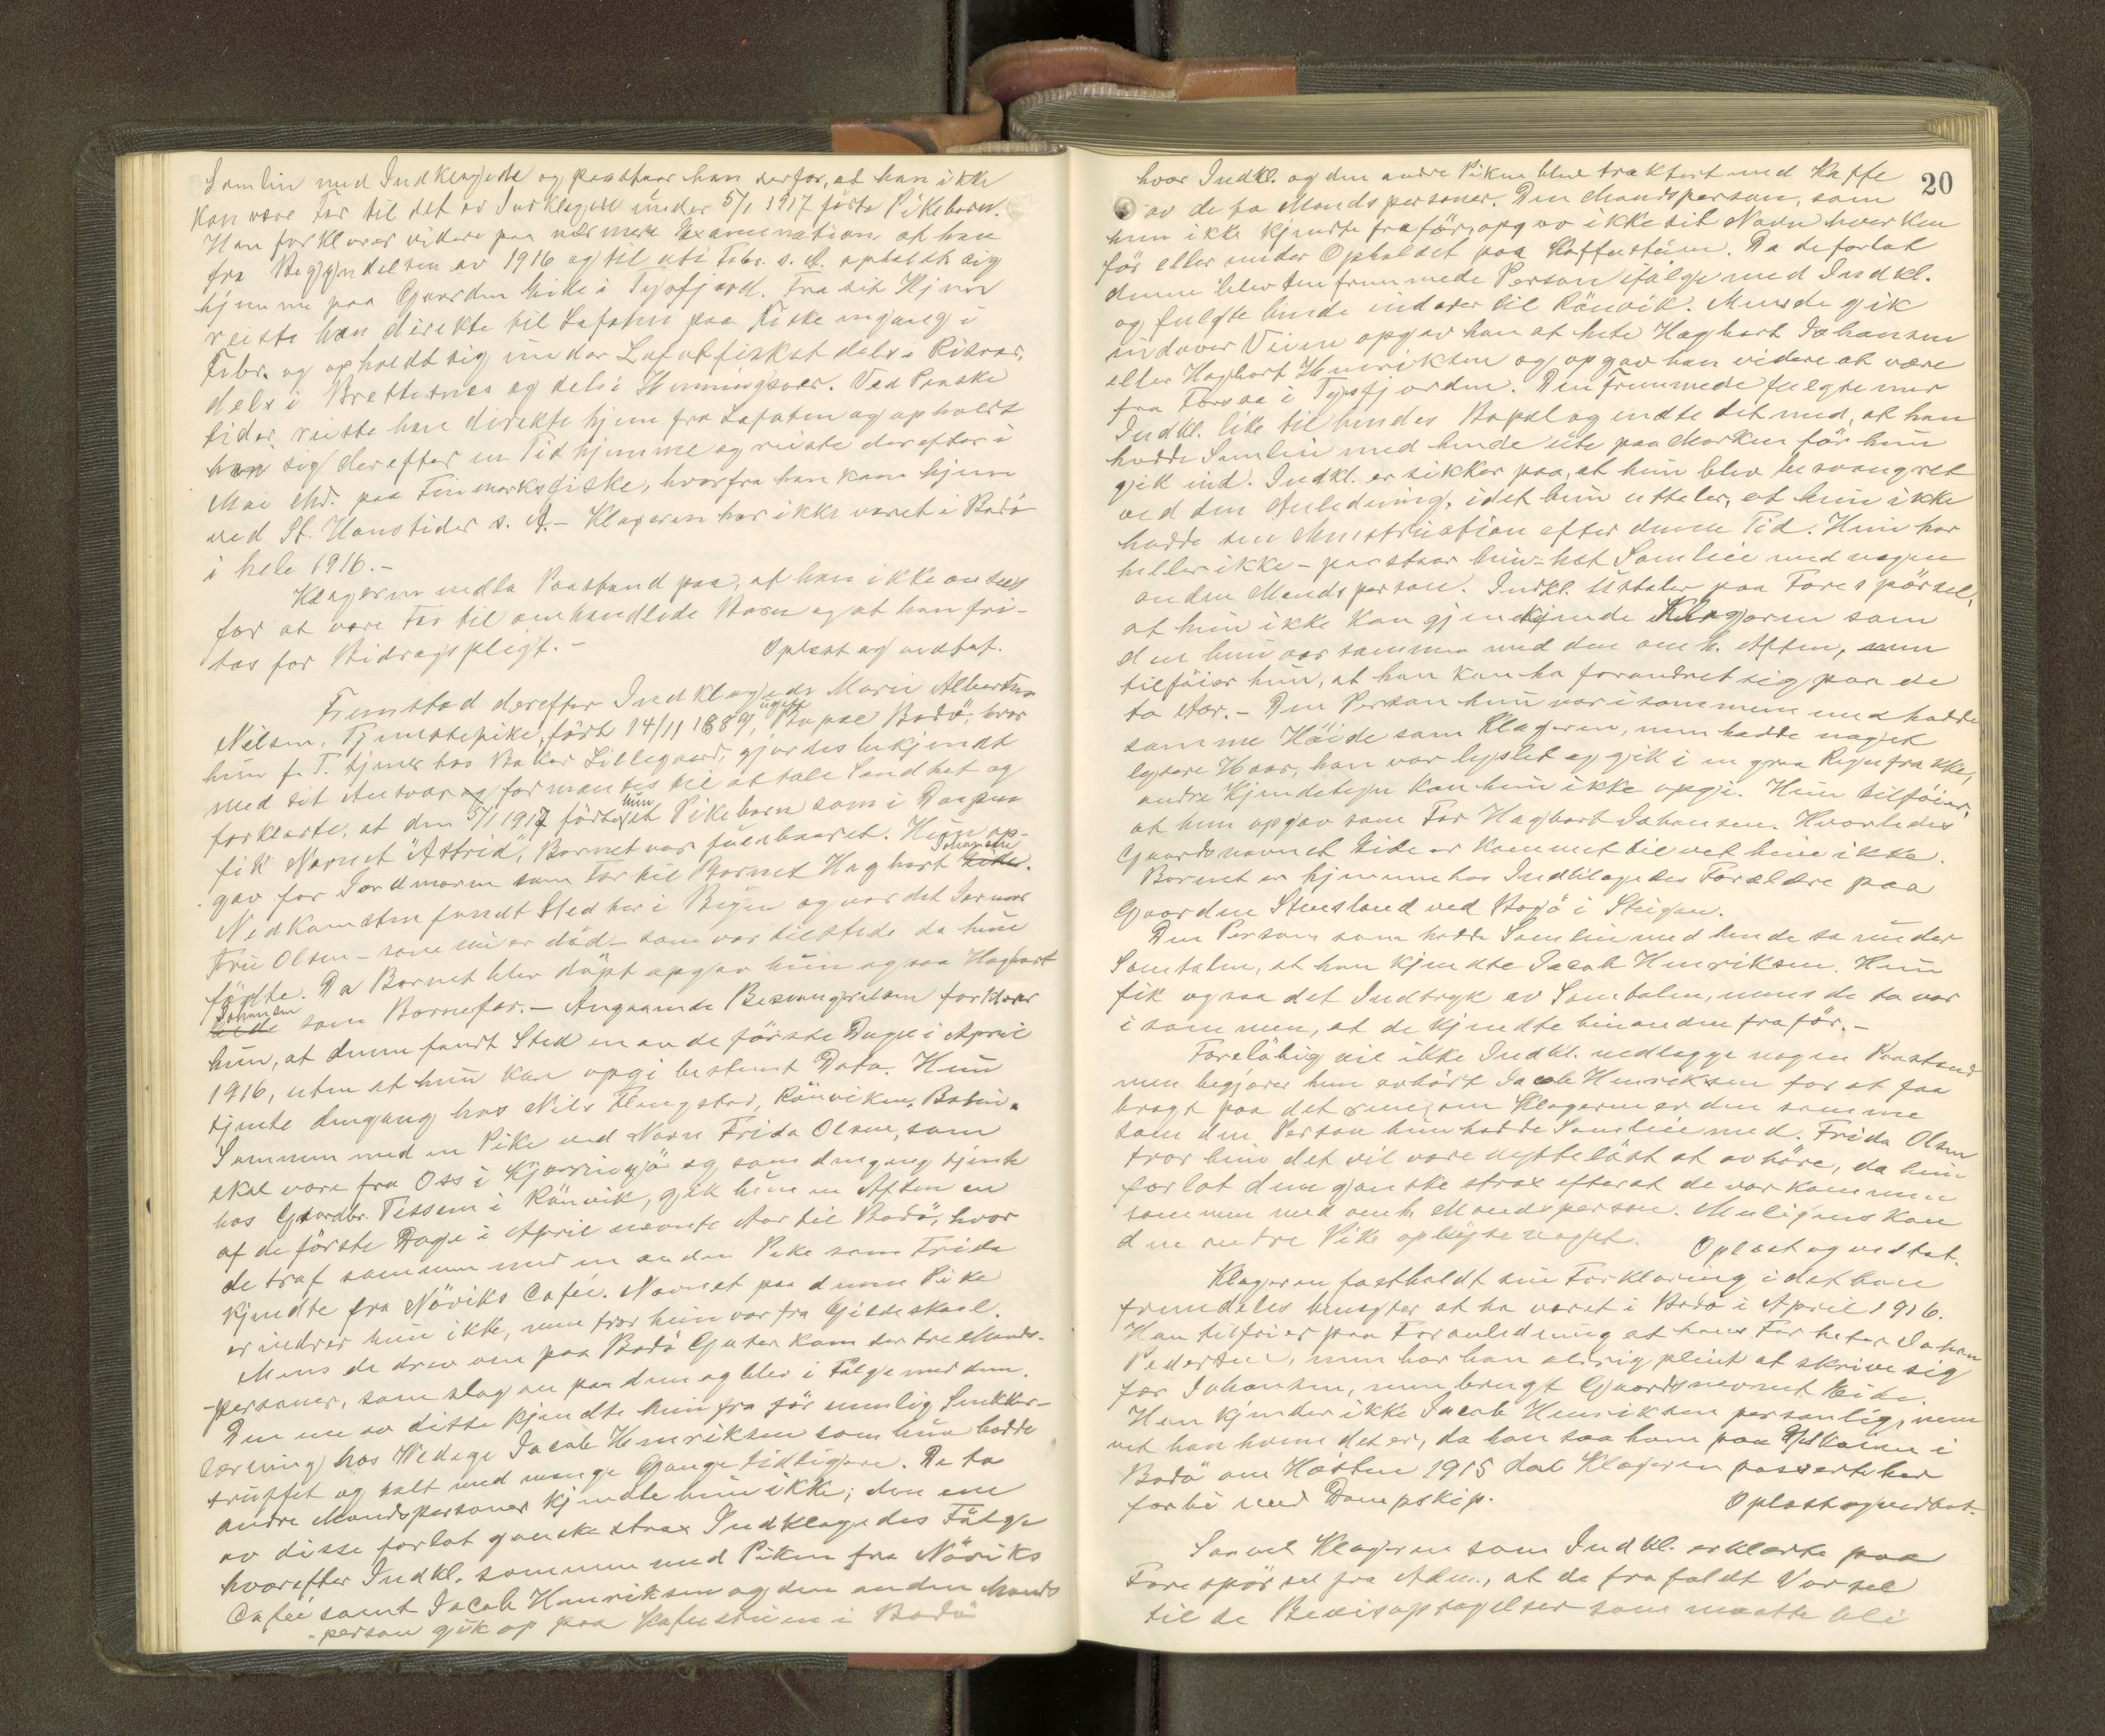 Samlin med Indklagede og paastaar han derfor, at han ikke
kan være Far til det av Indklagede under 5/1 1917 förte Pikebarn.
Han forklarer videre paa nærmere Examination at han
fra Begyndelsen av 1916 og til uti Febr. s. A. opholdt sig
hjemme paa Gaarden Eide i Tysfjord. Fra sit Hjem
reiste han direkte til Lofoten paa Fiske engang i
Febr. og opholdt sig under Lofotfisket dels i Risvær,
dels i Brettesnes og dels i Henningsvær. Ved Paaske
tider reiste han direkte hjem fra Lofoten og opholdt
han sig derefter en Tid hjemme og reiste derefter i
Mai Md. paa Finmarksfiske, hvorfra han kom hjem
ved St. Hanstider s. A. - Klageren har ikke været i Bodö
i hele 1916. -
Klageren nedla Paastand paa, at han ikke ansees
for at være Far til omhandlede Barn og at han fri-
tas for Bidragspligt. -
Oplæst og vedtat.
Fremstod derefter Indklagede Marie Albertine
Nilsen, Tjenestepike, född 14/11 1889, ugift Bopæl Bodö, hvor
hun f. T. tjener hos Baker Lillegaard, gjordes bekjendt
med sit Ansvar og formantes til at tale Sandhet og
forklarte, at den 5/1 1917 födte hun et Pikebarn som i Daapen
fik Navnet "Astrid", Barnet var fuldbaaret. Hun op-
gav for Jordmoren som Far til Barnet Hagbart Johansen Eide.
Nedkomsten fandt Sted her i Byen og var det Jormor
Fru Olsen - som nu er död - som var tilstede da hun
födte. Da Barnet blev döpt opgav hun ogsaa Hagbart
Johansen Eide som Barnefar. - Angaaende Besvangrelsen forklarer
hun, at denne fandt Sted en av de förste Dage i April
1916, uten at hun kan opgi bestemt Dato. Hun
tjente dengang hos Nils Flengstad, Rönviken, Bodin.
Sammen med en Pike ved Navn Frida Olsen, som
skal være fra Oss i Kjærringö og som dengang tjente
hos Gaardbr. Tessem i Rönvik, gik hun en Aften en
af de förste Dage i April nævnte Aar til Bodö, hvor
de traf sammen med en anden Pike som Frida
kjendte fra Növiks Cafée. Navnet paa denne Pike
erindrer hun ikke, men tror hun var fra Gildeskaal.
Mens de drev om paa Bodö Gater kom der tre Mands-
-personer, som slog an paa dem og blev i Fölge med dem.
Den ene av disse kjendte hun fra för nemlig Snekker-
lærning hos Wedege Jacob Henriksen som hun hadde
truffet og talt med mange Gange tidligere. De to
andre Mandspersoner kjendte hun ikke; den ene
av disse forlot ganske strax Indklagedes Fölge
hvorefter Indkl. sammen med Piken fra Növiks
Cafée samt Jacob Henriksen og den anden Mands
-person gik op paa Kafestuen i Bodö
20
hvor Indkl. og den andre Piken blev traktert med Kaffe
av de to Mandspersoner. Den Mandsperson, som
hun ikke kjendte fraför, opgav ikke sit Navn hverken
för eller under Opholdet paa Kaffestuen. Da de forlot
denne blev den fremmede Person ifölge med Indkl.
og fulgte hende indover til Rönvik. Mens de gik
indover Veien opgav han at hete Hagbart Johansen
eller Hagbart Henriksen og opgav han videre at være
fra Forsaa i Tysfjorden. Den Fremmede fulgte med
Indkl. like til hendes Bopæl og endte det med, at han
hadde Samleie med hende ute paa Marken för hun
gik ind. Indkl. er sikker paa, at hun blev besvangret
ved den Anledning, idet hun uttaler, at hun ikke
hadde sin Menstruation efter denne Tid. Hun har
heller ikke - paastaar hun - hat Samleie med nogen
anden Mandsperson. Indkl. uttaler paa Forespörsel,
at hun ikke kan gjenkjende Klageren som
den hun var sammen med den omh. Aften, men
tilföier hun, at han kan ha forandret sig paa de
to Aar. - Den Person hun var i sammen med hadde
samme Höide som Klageren, men hadde noget
lysere Haar, han var lyslet og gik i en graa Regnfrakke,
andre Kjendetegn kan hun ikke opgi. Hun tilföier,
at hun opgav som Far Hagbart Johansen. Hvorledes
Gaardsnavnet Eide er kommet til vet hun ikke.
Barnet er hjemme hos Indklagedes Forældre paa
Gaarden Stensland ved Bogö i Steigen.
Den Person som hadde Samleie med hende sa under
Samtalen, at han kjendte Jacob Henriksen. Hun
fik ogsaa det Indtryk av Samtalen, mens de to var
i sammen, at de kjendte hinanden fraför. -
Forelöbig vil ikke Indkl. nedlægge nogen Paastand
men begjærer hun avhört Jacob Henriksen for at faa
bragt paa det rene, om Klageren er den samme
som den Person hun hadde Samleie med. Frida Olsen
tror hun det vil være nytteløst at avhöre, da hun
forlot dem ganske strax efterat de var kommen
sammen med omh. Mandsperson. Muligens kan
den andre Pike oplyse noget.
Oplæst og vedtat.
Klageren fastholdt sin Forklaring idet han
fremdeles benegter at ha været i Bodö i April 1916.
Han tilföier paa Foranledning at hans Far heter Johan
Pedersen, men har han aldrig pleiet at skrive sig
for Johansen, men brugt Gaardsnavnet Eide.
Han kjender ikke Jacob Henriksen personlig, men
vet han hvem det er, da han saa ham paa Dkaien i
Bodö om Hösten 1915 da Klageren passerte her
forbi med Dampskip.
Oplæst og vedtat.
Saavel Klageren som Indkl. erklærte paa
Forespörsel fra Adm., at de frafaldt Varsel
til de Bevisoptagelser som maatte bli